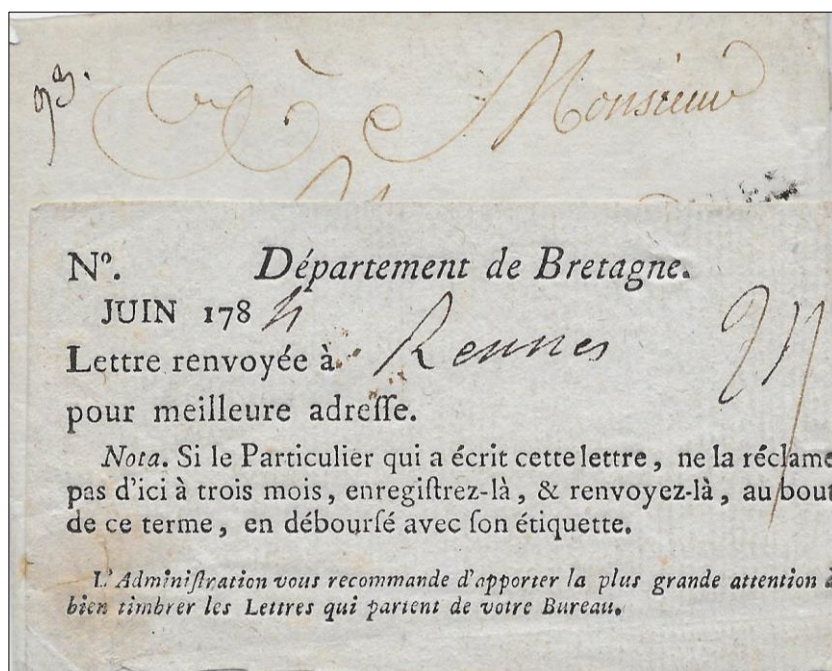 À Monsieur
Nº. Département de Bretagne.
JUIN 1784
Lettre renvoyée à Rennes
pour meilleure adreſſe.
Nota. Si le Particulier qui a écrit cette lettre, ne la réclame
pas d'ici à trois mois, enregiſtrez-là, & renvoyez-là, au bout
de ce terme, en débourſé avec ſon étiquette.
L'Adminiſtration vous recommande d'apporter la plus grande attention à
bien timbrer les Lettres qui partent de votre Bureau.